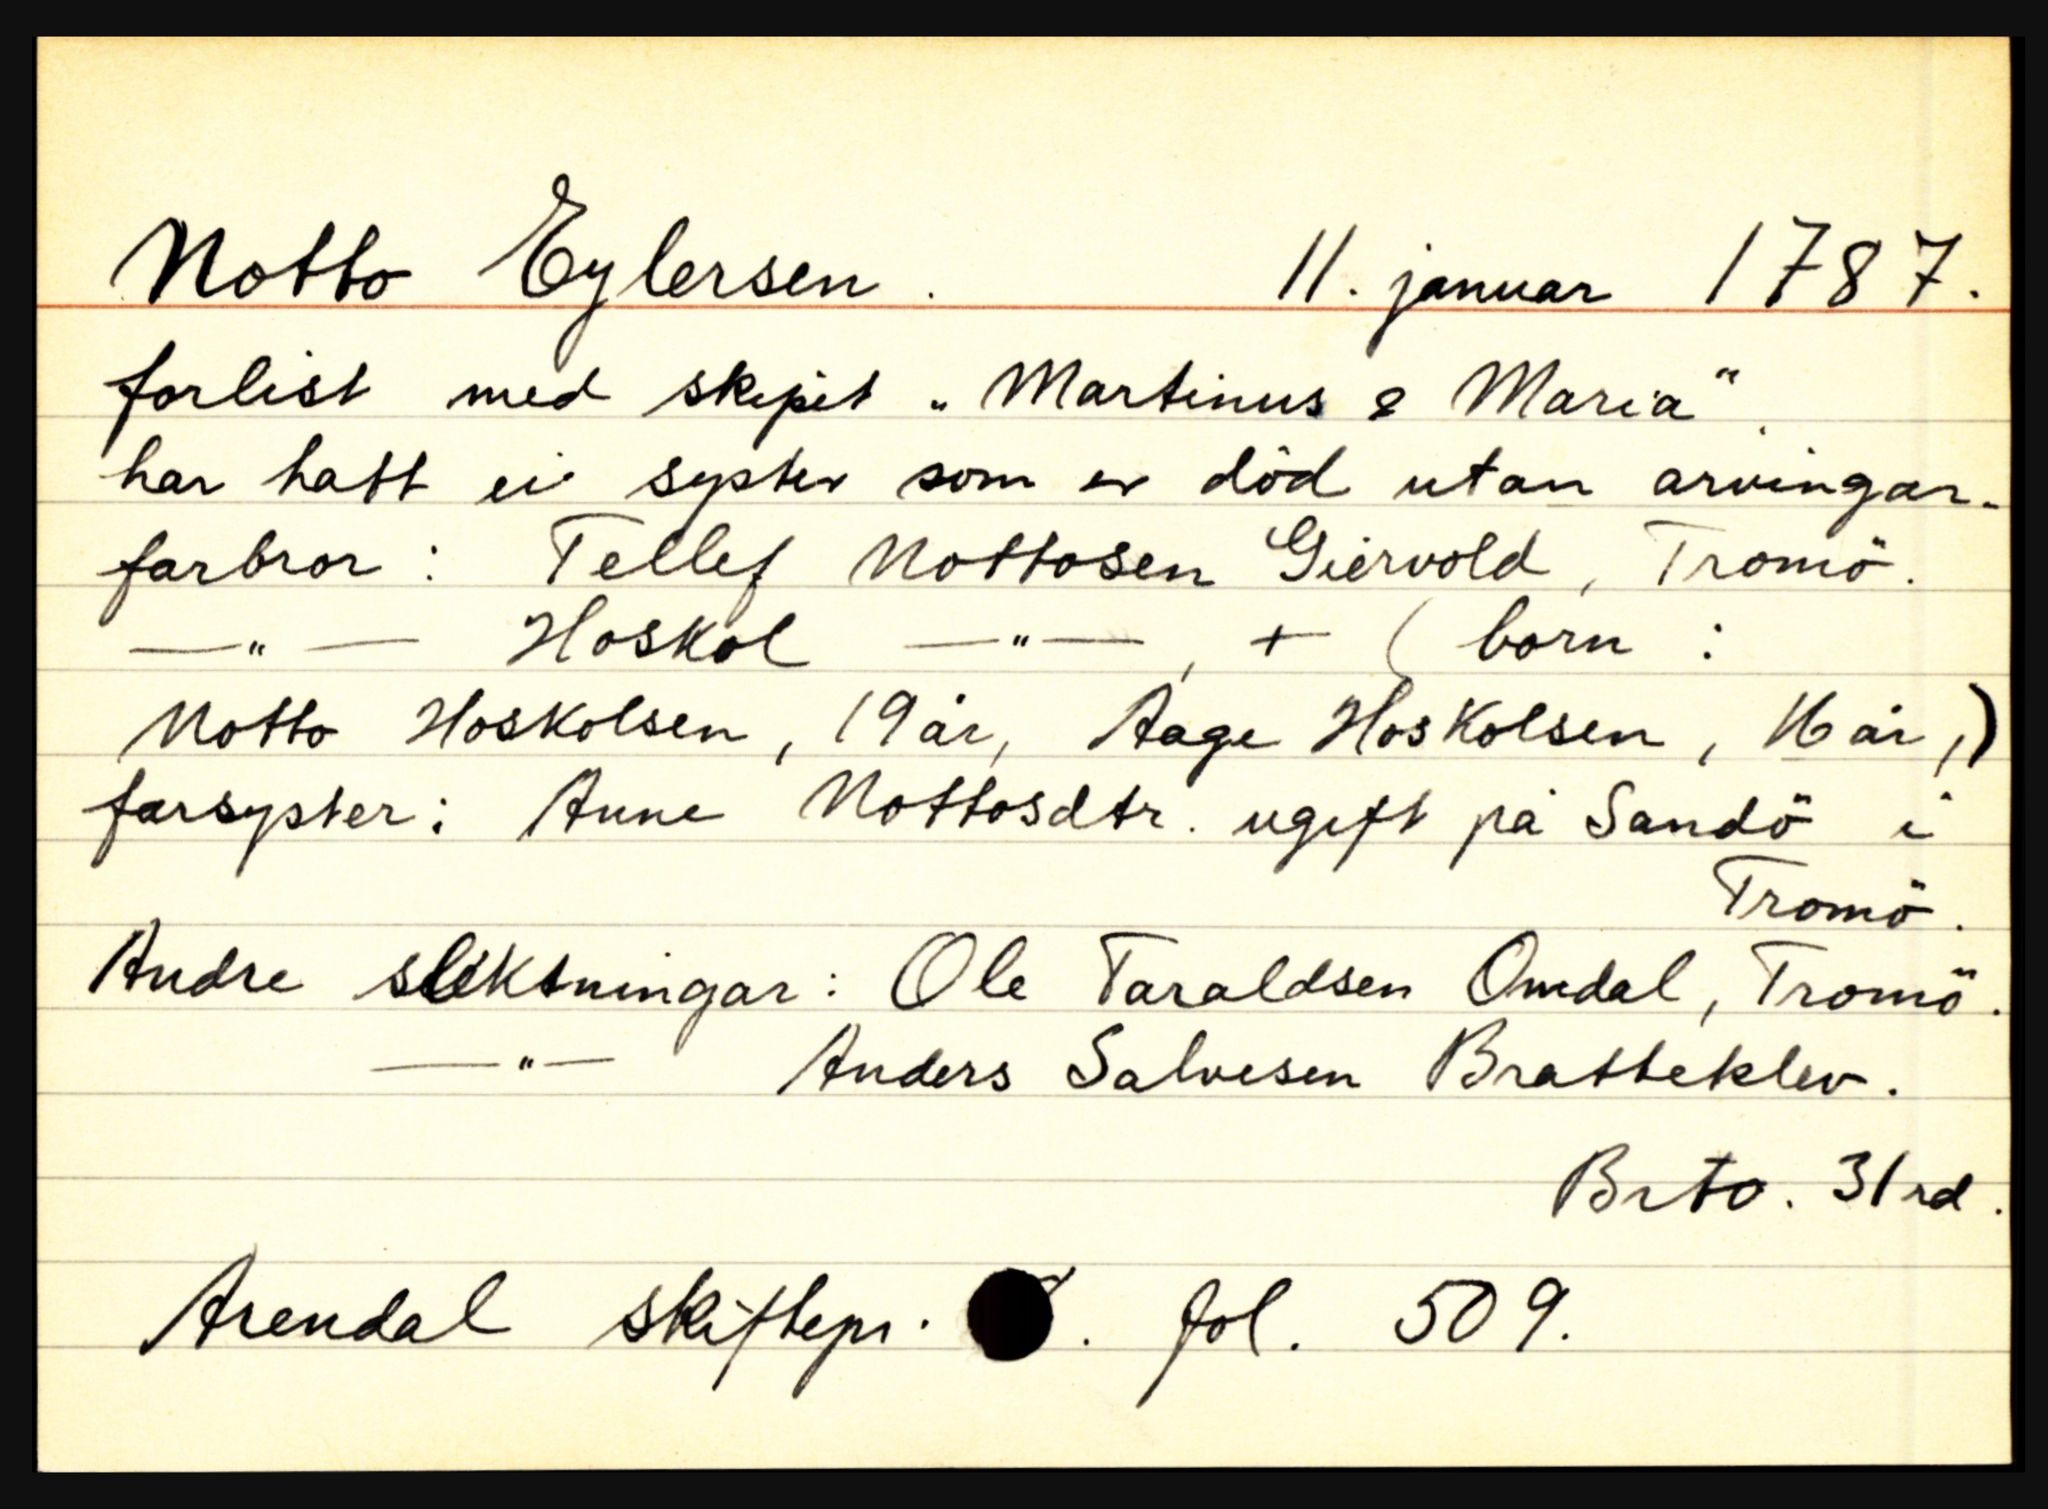 Notto Eylersen. 11. januar 1787.
forlist med skipet „Martinus & Maria".
har hatt ei syster som er död utan arvingar.
farbror: Tellef Nottosen Giervold, Tromö.
—"— Hoskol —"—, + ( born :
Notto Hoskolsen, 19 år, Aage Hoskolsen, 16 år,)
farsyster: Anne Nottosdtr. ugift på Sandö i
Tromö.
Andre slektningar: Ole Taraldsen Omdal, Tromö.
—"— Anders Salvesen Bratteklev.
Brto. 31 rd.
Arendal skiftepr. . fol. 509.